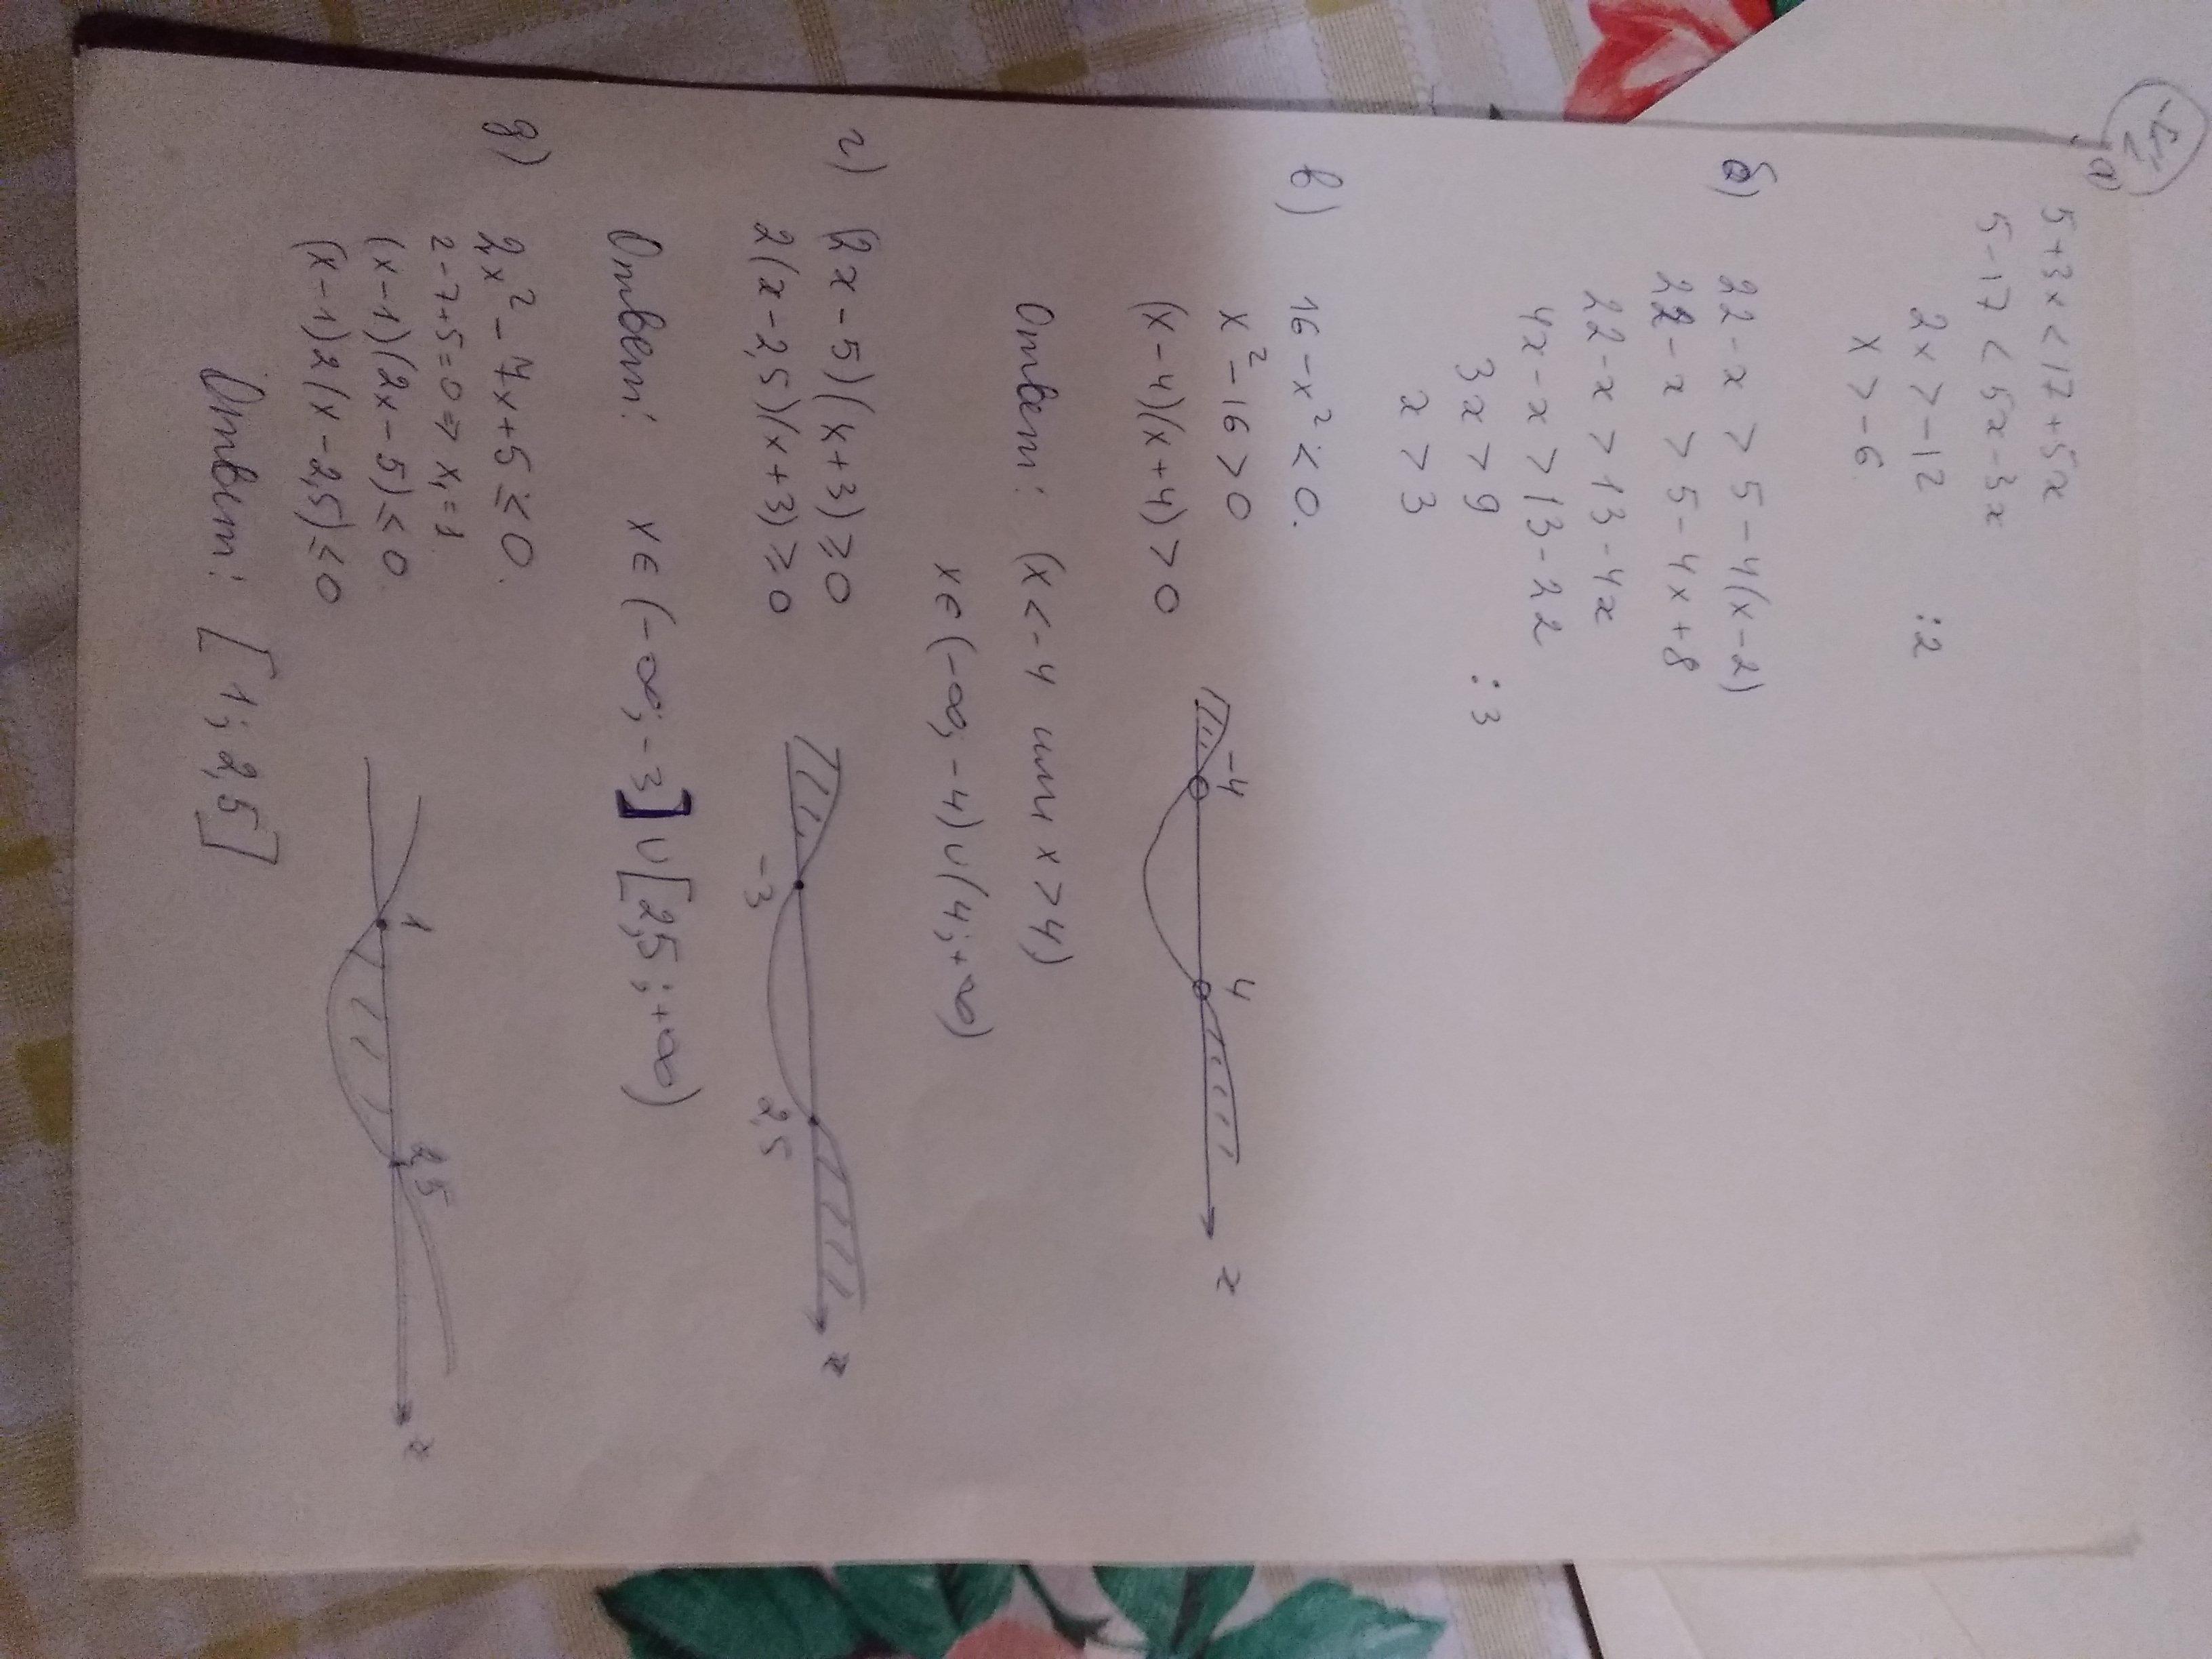 а)
5+3x<17+5x
5-17<5x-3x
2x>-12 :2
x>-6
б) 22-x>5-4(x-2)
22-x>5-4x+8
22-x>13-4x
4x-x>13-22
3x>9 :3
x>3
в) 16-x²<0.
x²-16>0
(x-4)(x+4)>0
-4 4 x
Ответ: (x<-4 или x>4)
x∈(-∞;-4)∪(4;+∞)
г) (2x-5)(x+3)≥0
2(x-2,5)(x+3)≥0
-3 2,5 x
Ответ: x∈(-∞;-3]∪[2,5;+∞)
д) 2x²-7x+5≤0.
2-7+5=0⇒x₁=1
(x-1)(2x-5)≤0
(x-1)2(x-2,5)≤0
1 2,5 x
Ответ: [1; 2,5]